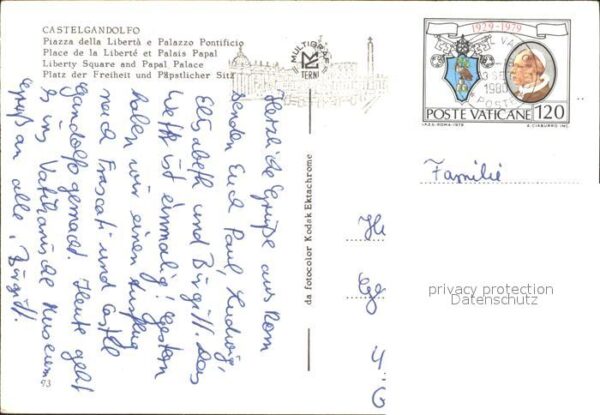 CASTELGANDOLFO
Piazza della Libertà e Palazzo Pontificio
Place de la Liberté et Palais Papal
Liberty Square and Papal Palace
Platz der Freiheit und Päpstlicher Sitz
MULTIGRAF
TERNI
1929-1979
1980
POSTE
POSTE VATICANE 120
I.P.Z.S. ROMA-1979
A. CIABURRO INC.
Herzliche Grüße aus Rom
senden Euch Paul, Ludwig,
Elisabeth und Birgitt. Das
Wetter ist einmalig! Gestern
haben wir einen Ausflug
nach Frascati und Castel
Gandolfo gemacht. Heute geht
es ins Vatikanische Museum
Gruß an alle, Birgitt.
93
da fotocolor Kodak Ektachrome
Familie
He
Ge
4
G
privacy protection
Datenschutz